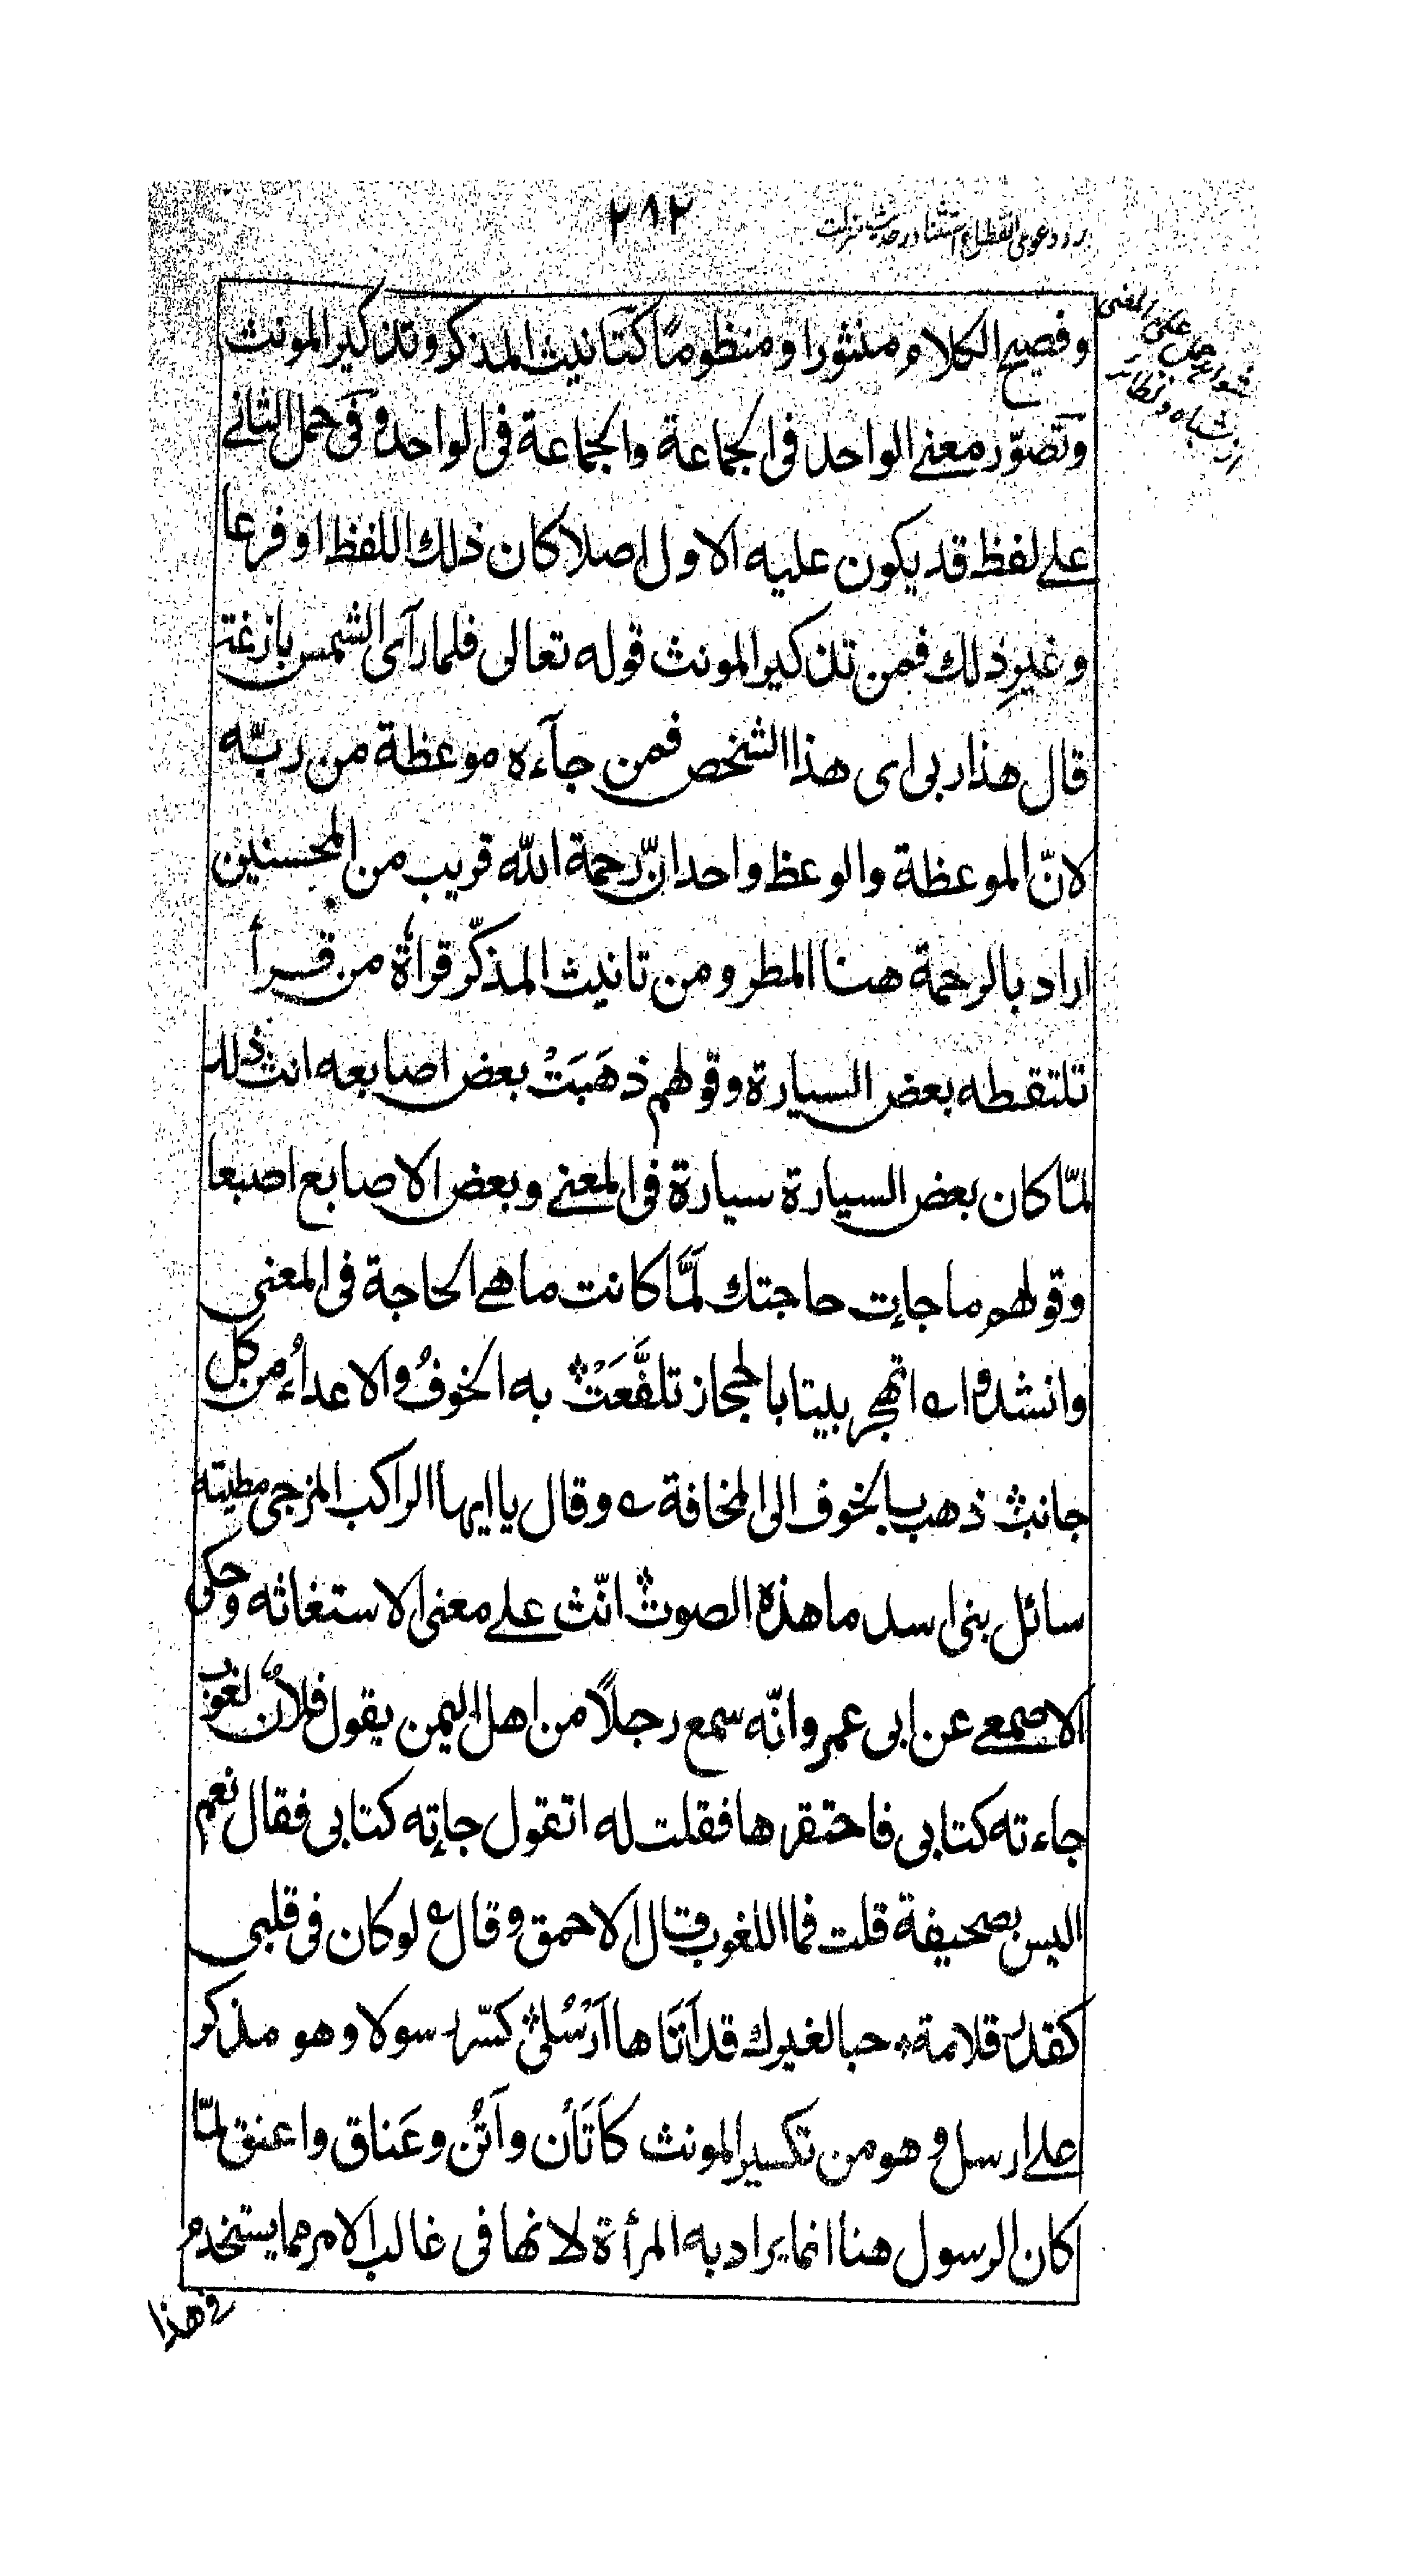 رد دعوی انقطاع استثنا در حدیث منزلت
٢٨٢
شواهد حمل علی المعنی
از اشباه و نظائر
و فصیح الکلام منثورا و منظومًا کتانیث المذکر و تذکیر المونث
و تصوّر معنی الواحد فی الجماعة والجماعة فی الواحد و فی حمل الثانی
علی لفظ قد یکون علیه الاول اصلا کان ذلك اللفظ او فرعا
و غیر ذلك فمن تذکیر المونث قوله تعالی فلما رآی الشمس بازغة
قال هذا ربی ای هذا الشخص فمن جآءه موعظة من ربّه
لانّ الموعظة والوعظ واحد انّ رحمة الله قریب من المحسنین
اراد بالرحمة هنا المطر و من تانیث المذکّر قراءة من قرأ
تلتقطه بعض السیارة وقولهم ذهَبَتْ بعض اصابعه انث ذلك
لمّا کان بعض السیارة سیارة فی المعنی و بعض الاصابع اصبعا
و قولهم ما جاءت حاجتك لَمَّا کانت ما هی الحاجة فی المعنی
وانشدوا ع اتهجر بیتا بالحجاز تلفَّعَتْ * به الخوفُ والاعداءُ من کل
جانب ذهب بالخوف الی المخافة ع وقال یا ایها الراکب المزجی مطیته
سائل بنی اسد ما هذه الصوت انّث علی معنی الاستغاثه وحکی
الاصمعی عن ابی عمرو انّه سمع رجلًا من اهل الیمن یقول فلانٌ لغوب
جاءته کتابی فاحتقرها فقلت له اتقول جاءته کتابی فقال نعم
الیس بصحیفة قلت فما اللغوب قال الاحمق وقال ع لو کان فی قلبی
کقدر قلامة * حبا لغیرك قد اَتَاها اَرْسُلی کسّر رسولا وهو مذکر
علی ارسل و هو من تکسیر المونث کاَتَان وآتُن وعَناق واعنق لمّا
کان الرسول هنا انما یراد به المرأة لانها فی غالب الامر مما یستخدم
فی هذا